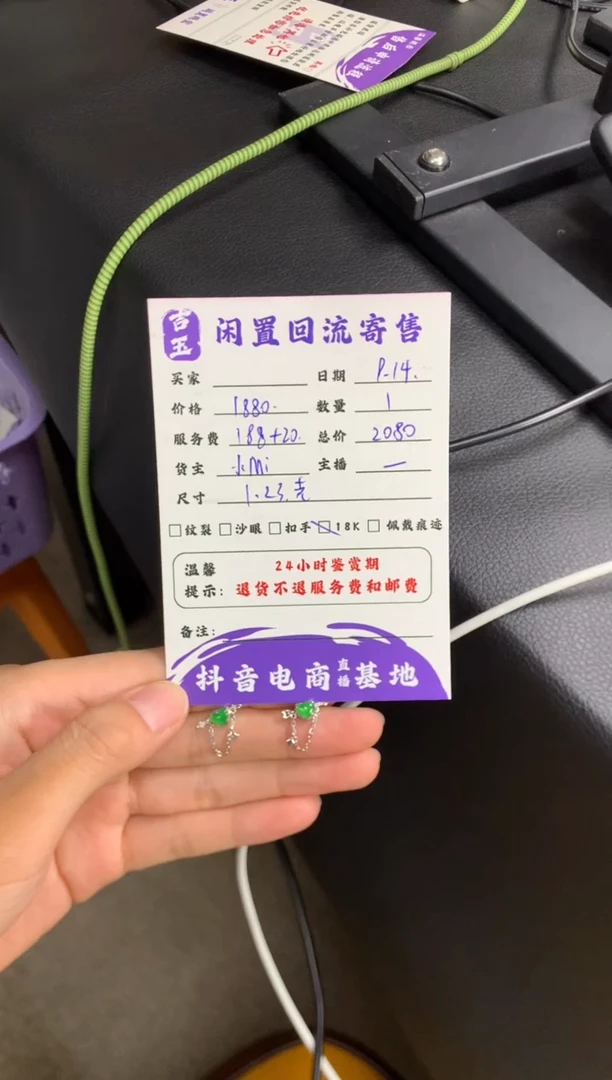 吉玉 闲置回流寄售
买家 日期 P.14.
价格 1880. 数量 1
服务费 188+20. 总价 2080
货主 水Mi 主播 一
尺寸 1.23克
□纹裂 □沙眼 □扣手 □18K □ 佩戴痕迹
温馨提示: 24小时鉴赏期
退货不退服务费和邮费
备注:
抖音电商直播基地
售后申请流程